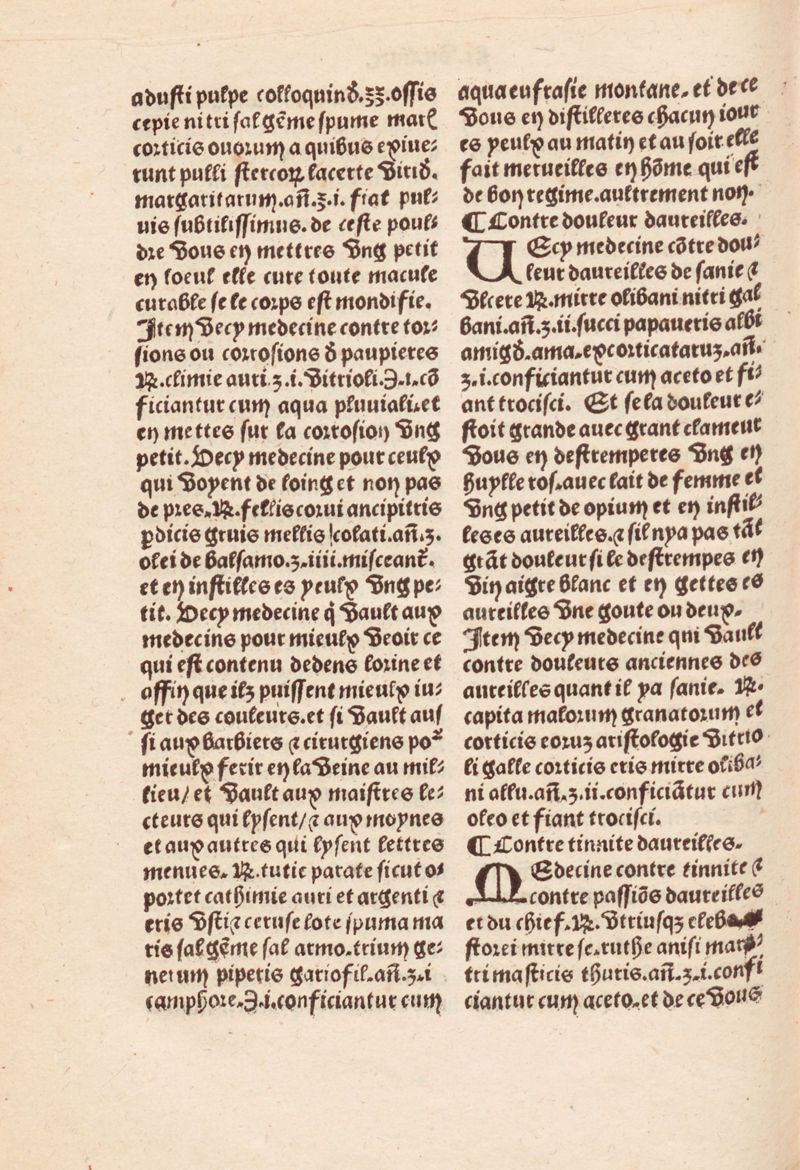 adusti pulpe colloquinđ.ʒʒ.ossis
cepie nitri sal gẽme spume marĩ
corticis ouorum a quibus exiue⸗
runt pulli stercoꝝ lacerte Viriđ.
margaritarum.añ.ʒ.i. fiat pul⸗
uis subtilissimus. de ceste poul⸗
dre Vous en mettres Vng petit
en loeul elle cure toute macule
curable se le corps est mondifie.
Item Vecy medecine contre tor⸗
sions ou corrosions đ paupieres
℞.climie auri.ʒ.i.Vitrioli.℈.i.cõ
ficiantur cum aqua pluuiali.et
en mettes sur la corrosion Vng
petit. Vecy medecine pour ceulx
qui Voyent de loing et non pas
de pres.℞.fellis corui ancipitris
ꝑdicis gruis mellis colati.añ.ʒ.
olei de balsamo.ʒ.iiii.misceanť.
et en instilles es yeulx Vng pe⸗
tit. Vecy medecine q̃ Vault aux
medecins pour mieulx Veoir ce
qui est contenu dedens lorine et
affin que ilz puissent mieulx iu⸗
ger des couleurs.et si Vault aus
si aux barbiers ⁊ cirurgiens poᷣ
mieulx ferir en la Veine au mil⸗
lieu/ et Vault aux maistres le⸗
cteurs qui lysent/⁊ aux moynes
et aux autres qui lysent lettres
menues. ℞.tutie parate sicut o⸗
portet cathimie auri et argenti ⁊
eris Vsti ⁊ ceruse lote spuma ma
ris sal gẽme sal armo.trium ge⸗
nerum piperis gariofil.añ.ʒ.i
camphore.℈.i.conficiantur cum
aqua eufrasie montane. et de ce
Vous en distilleres chacun iour
es yeulx au matin et au soir elle
fait merueilles en hõme qui est
de bon regime.aultrement non.
¶ Contre douleur daureilles.
VEcy medecine cõtre dou⸗
leur daureilles de sanie ⁊
Vlcere ℞.mirre olibani nitri gal
bani.añ.ʒ.ii.succi papaueris albi
amigđ.ama.excorticataruʒ.añ.
ʒ.i.conficiantur cum aceto et fi⸗
ant trocisci. Et se la douleur e⸗
stoit grande auec grant clameur
Vous en destremperes Vng en
huylle ros.auec lait de femme et
Vng petit de opium et en instil⸗
les es aureilles.⁊ sil nya pas tãt
grãt douleur si le destrempes en
Vin aigre blanc et en gettes es
aureilles Vne goute ou deux.
Item Vecy medecine qui Vault
contre douleurs anciennes des
aureilles quant il ya sanie. ℞.
capita malorum granatorum et
corticis eoruʒ aristologie Vitrio
li galle corticis eris mirre oliba⸗
ni allu.añ.ʒ.ii.conficiãtur cum
oleo et fiant trocisci.
¶ Contre tinnite daureilles.
MEdecine contre tinnite ⁊
contre passiõs daureilles
et du chief.℞.Vtriusqʒ eleb
storei mirre se.ruthe anisi mar
tri masticis thuris.añ.ʒ.i.confi
ciantur cum aceto.et de ce Vous